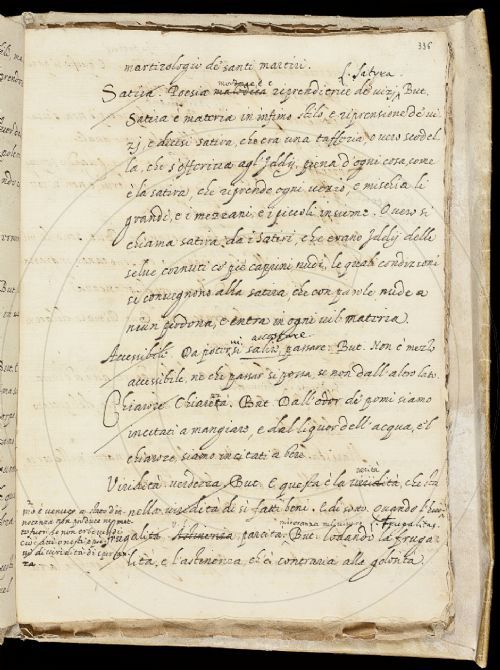 336
martirologio de santi martiri.
L. satyra.
mordace, e
Satira. Poesia maledica riprenditrice de vizj. But.
Satira è materia in infimo stilo, e riprensione de vi
zj, e dicesi satira, che era una tafferia, o vero scodel
la, che s'offeriva agl'Iddij, piena d'ogni cosa, come
è la satira, che riprende ogni vizio, e mischia li
grandi, e i mezzani, e i piccoli insieme. O vero si
chiama satira, da i Satiri, che erano Iddij delle
selve cornuti co' piè caprini nudi, le quali condizioni
si convengono alla satira, che con parole nude a
niun perdona, e entra in ogni vil materia.
accostare
Accessibile. Da potervisi salire, passare. But. Non è mezzo
accessibile, nè che passar si possa, se non dall'altro lato.
Chiarore. Chiarezza. But. Dall'odor de' pomi siamo
incitati a mangiare, e dal liquor dell'acqua, e'l
chiarore, siamo incitati a bere.
verità
Viridità. verdezza. But. E questa è la viridità, che sta
nella viridità di si fatti beni. E di sotto. Quando l'huo
mo è venuto a
L. frugalitas.
Frugalità. Astinenza parcità. But. lodando la fruga
lità, e l'astinenza, che è contraria alla golosità.